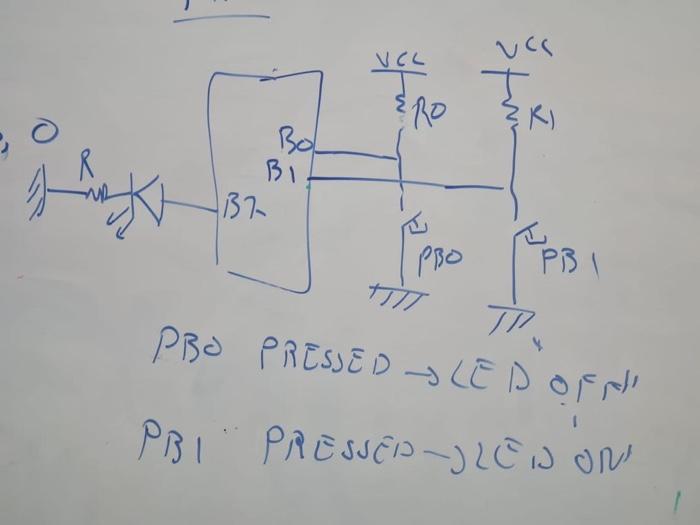 VCC
VCC
R0
R1
O
R
B0
B1
B7
PB0
PB1
PB0 PRESSED → LED OFF"
PB1 PRESSED → LED ON"